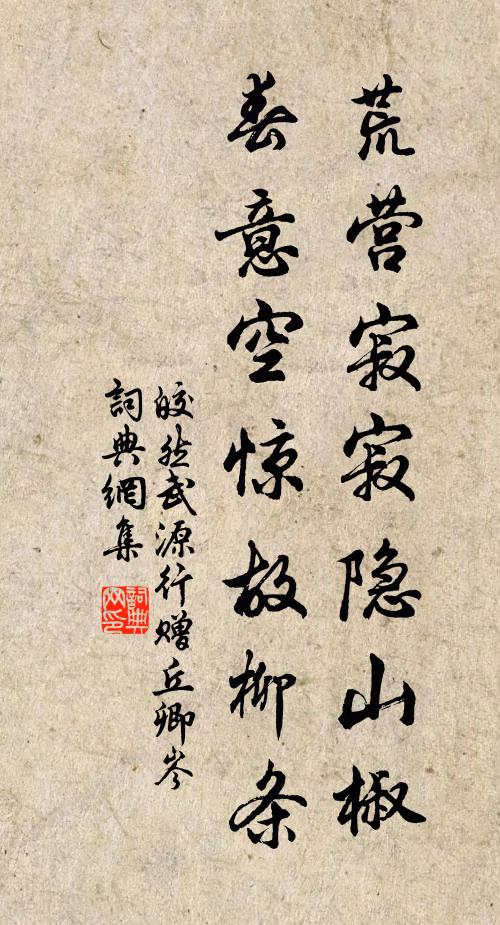 荒营寂寂隐山椒
春意空惊故柳条
皎然武源行赠丘卿岑
词典網集
詞典網印